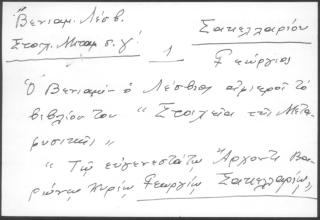 Βενιαμ. Λέσβ.
Στοιχ. Μεταφ. σ. γ'
Σακελλαρίου
1
Γεώργιος
Ὁ Βενιαμὶν ὁ Λέσβιος ἀφιεροῖ τὸ
βιβλίον του "Στοιχεῖα τῆς Μετα-
φυσικῆς"
"Τῷ εὐγενεστάτῳ Ἄρχοντι Βα-
ρώνῳ Κυρίῳ Γεωργίῳ Σακελλαρίῳ"